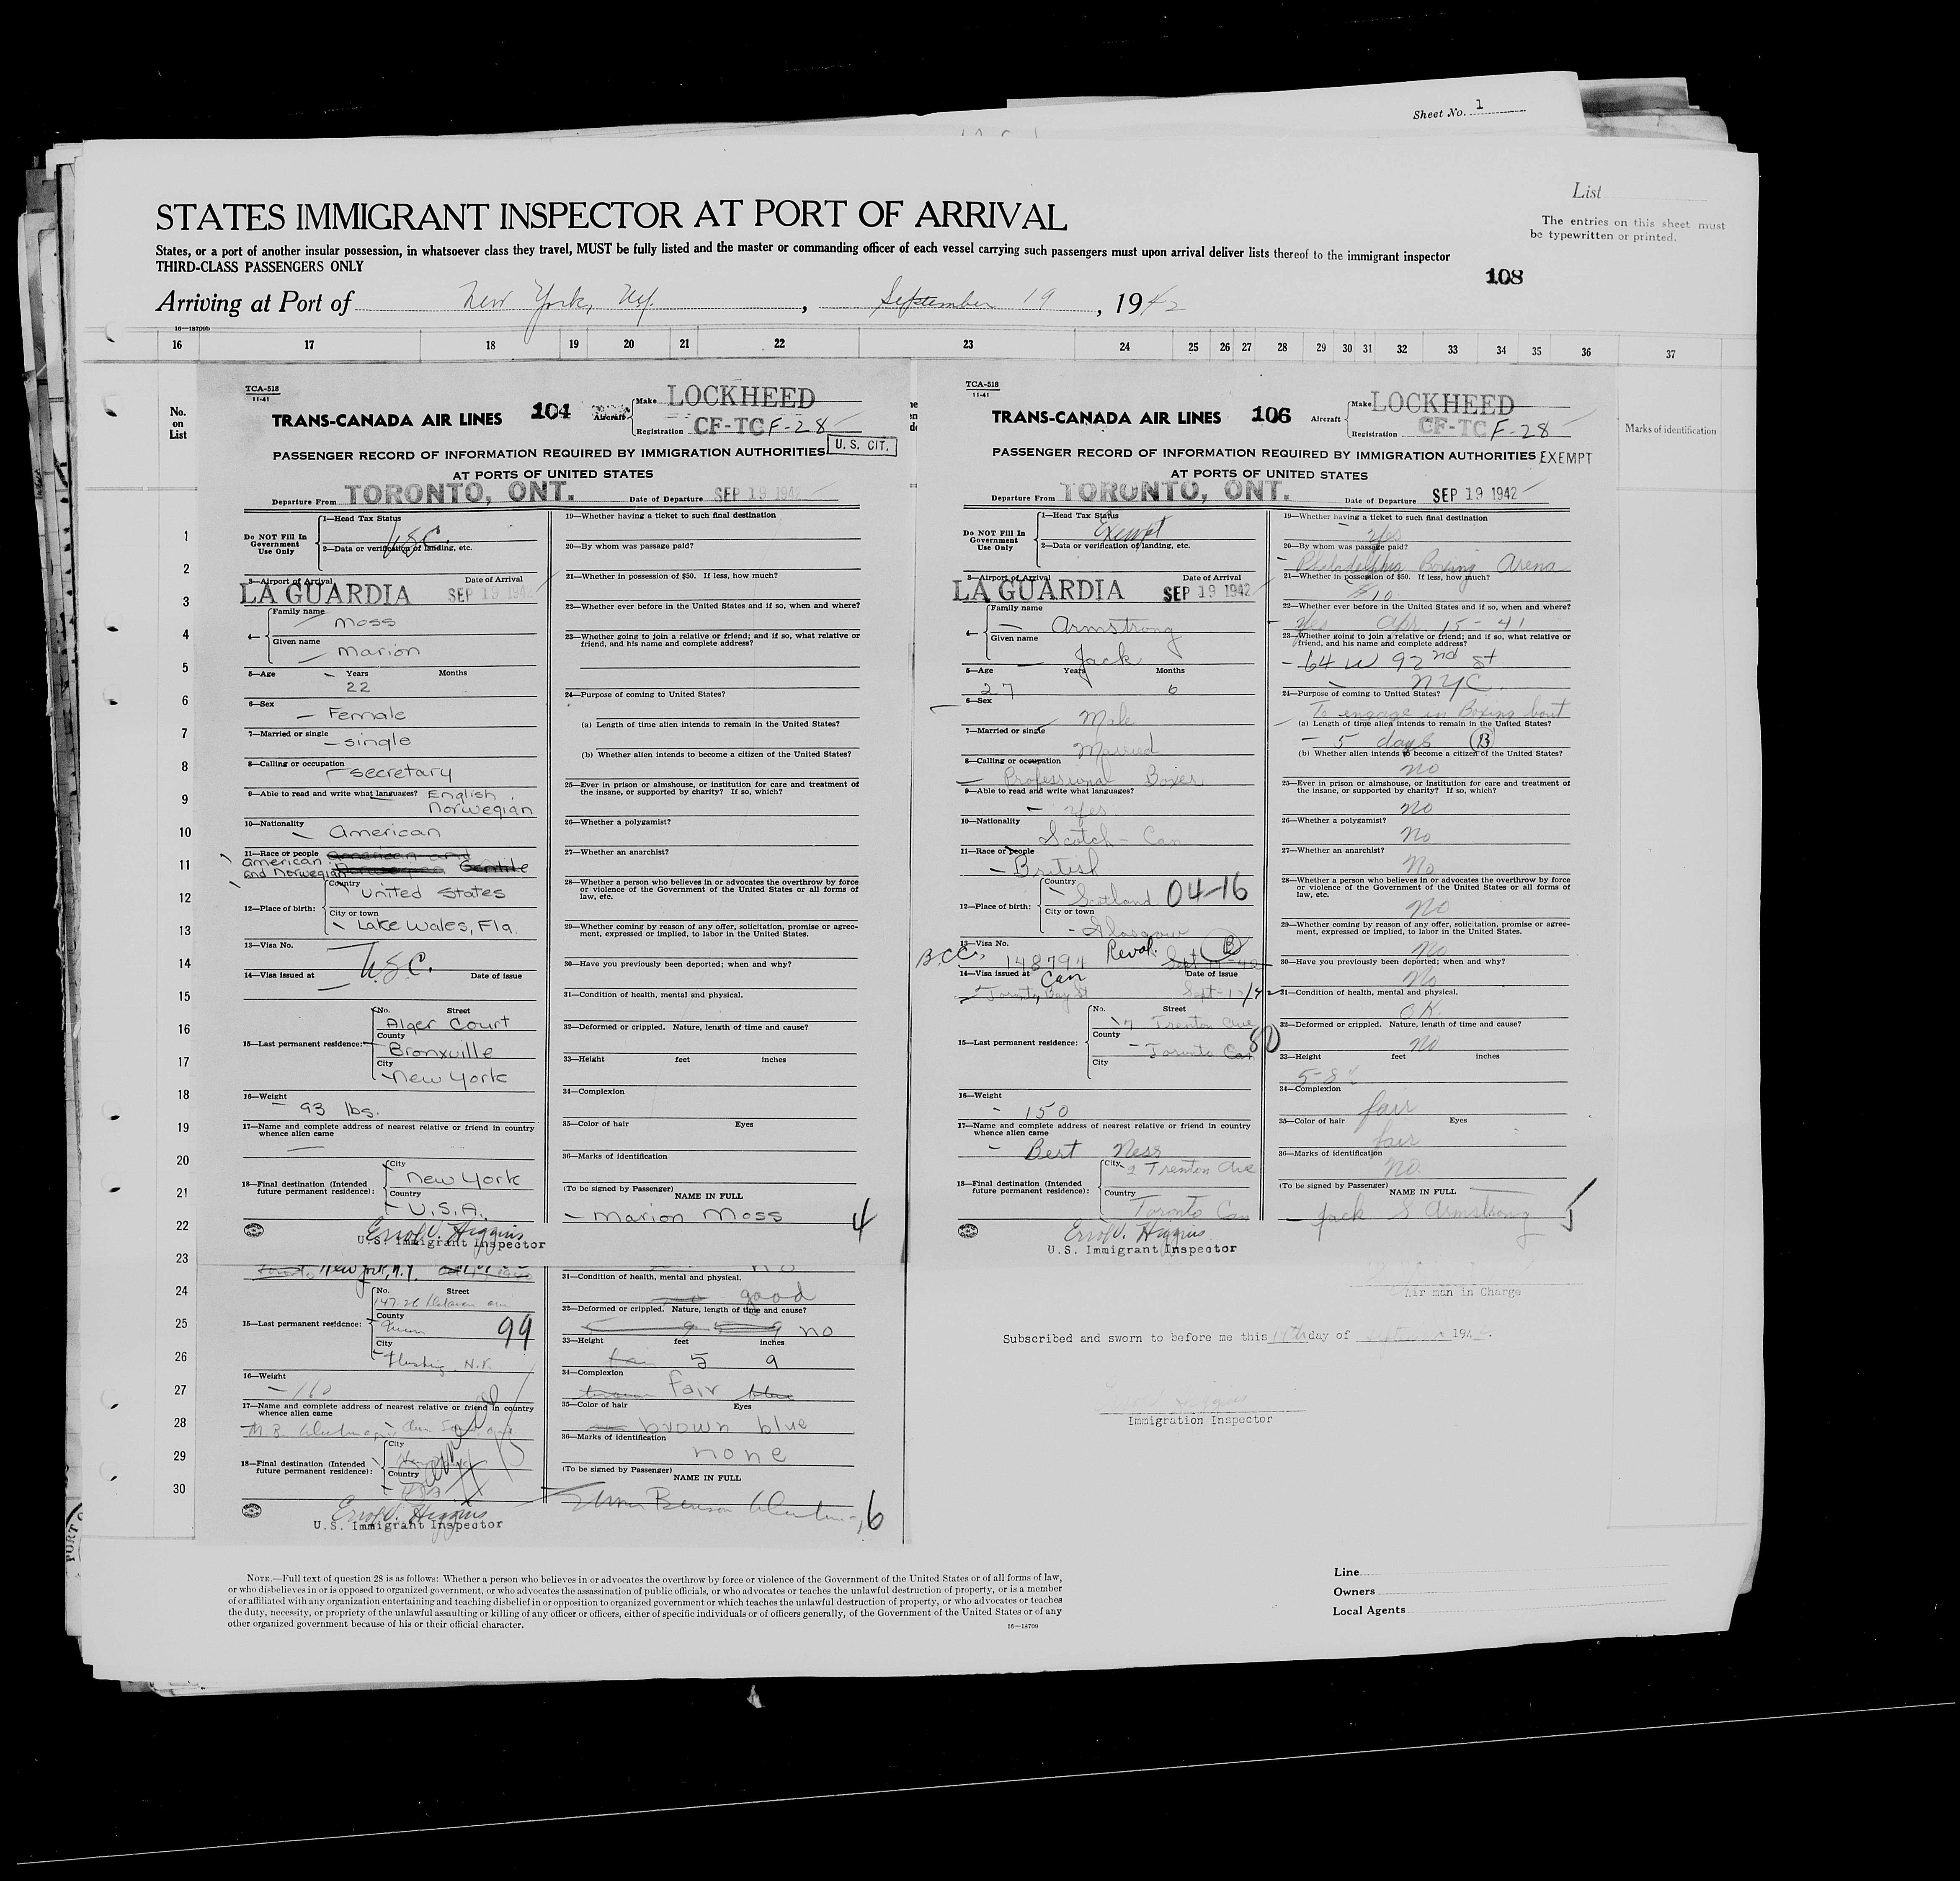 Sheet No. 1
List
STATES IMMIGRANT INSPECTOR AT PORT OF ARRIVAL
The entries on this sheet must
be typewritten or printed.
States, or a port of another insular possession, in whatsoever class they travel, MUST be fully listed and the master or commanding officer of each vessel carrying such passengers must upon arrival deliver lists thereof to the immigrant inspector
THIRD-CLASS PASSENGERS ONLY
108
Arriving at Port of New York, , September 19, 1942
16—18709b
16 17 18 19 20 21 22 23 24 25 26 27 28 29 30 31 32 33 34 35 36 37
No.
on
List
Marks of identification
1
2
3
4
5
6
7
8
9
10
11
12
13
14
15
16
17
18
19
20
21
22
23
24
25
26
27
28
29
30
TCA-518
11-41
TRANS-CANADA AIR LINES 104 Aircraft Make LOCKHEED
Registration CF-TC F-28
U. S. CIT.
PASSENGER RECORD OF INFORMATION REQUIRED BY IMMIGRATION AUTHORITIES
AT PORTS OF UNITED STATES
Departure From TORONTO, ONT. Date of Departure SEP 19 1942
Do NOT Fill In
Government
Use Only
1—Head Tax Status
USC.
2—Data or verification of landing, etc.
3—Airport of Arrival Date of Arrival
LA GUARDIA SEP 19 1942
4— Family name
Moss
Given name
Marion
5—Age Years Months
22
6—Sex
Female
7—Married or single
single
8—Calling or occupation
secretary
9—Able to read and write what languages? English
Norwegian
10—Nationality
American
11—Race or people American and
American and Norwegian Gentile
12—Place of birth: Country
United States
City or town
Lake Wales, Fla.
13—Visa No.
U.S.C.
14—Visa issued at Date of issue
15—Last permanent residence: No. Street
Alger Court
County
Bronxville
City
New York
16—Weight
93 lbs.
17—Name and complete address of nearest relative or friend in country
whence alien came
18—Final destination (Intended
future permanent residence): City
New York
Country
U.S.A.
Errol V. Higgins
U.S. Immigrant Inspector
19—Whether having a ticket to such final destination
20—By whom was passage paid?
21—Whether in possession of $50. If less, how much?
22—Whether ever before in the United States and if so, when and where?
23—Whether going to join a relative or friend; and if so, what relative or
friend, and his name and complete address?
24—Purpose of coming to United States?
(a) Length of time alien intends to remain in the United States?
(b) Whether alien intends to become a citizen of the United States?
25—Ever in prison or almshouse, or institution for care and treatment of
the insane, or supported by charity? If so, which?
26—Whether a polygamist?
27—Whether an anarchist?
28—Whether a person who believes in or advocates the overthrow by force
or violence of the Government of the United States or all forms of
law, etc.
29—Whether coming by reason of any offer, solicitation, promise or agree-
ment, expressed or implied, to labor in the United States.
30—Have you previously been deported; when and why?
31—Condition of health, mental and physical.
32—Deformed or crippled. Nature, length of time and cause?
33—Height feet inches
34—Complexion
35—Color of hair Eyes
36—Marks of identification
(To be signed by Passenger)
NAME IN FULL
Marion Moss 4
TCA-518
11-41
TRANS-CANADA AIR LINES 106 Aircraft Make LOCKHEED
Registration CF-TC F-28
PASSENGER RECORD OF INFORMATION REQUIRED BY IMMIGRATION AUTHORITIES EXEMPT
AT PORTS OF UNITED STATES
Departure From TORONTO, ONT. Date of Departure SEP 19 1942
Do NOT Fill In
Government
Use Only
1—Head Tax Status
Exempt
2—Data or verification of landing, etc.
3—Airport of Arrival Date of Arrival
LA GUARDIA SEP 19 1942
4— Family name
Armstrong
Given name
Jack
5—Age Years Months
27 6
6—Sex
Male
7—Married or single
Married
8—Calling or occupation
Professional Boxer
9—Able to read and write what languages?
yes
10—Nationality
Scotch - Can
11—Race or people
British
12—Place of birth: Country
Scotland 04-16
City or town
Glasgow
13—Visa No.
B.C.C. 148794 Reval. B
14—Visa issued at Can Date of issue
Toronto, Bay St
15—Last permanent residence: No. Street
7 Trenton Ave
County
Toronto Can 80
City
16—Weight
150
17—Name and complete address of nearest relative or friend in country
whence alien came
Bert Ness
18—Final destination (Intended
future permanent residence): City
2 Trenton Ave
Country
Toronto Can
Errol V. Higgins
U.S. Immigrant Inspector
19—Whether having a ticket to such final destination
Yes
20—By whom was passage paid?
Philadelphia Boxing Arena
21—Whether in possession of $50. If less, how much?
$10
22—Whether ever before in the United States and if so, when and where?
Yes Apr. 15-41
23—Whether going to join a relative or friend; and if so, what relative or
friend, and his name and complete address?
64 W 92nd St
NYC.
24—Purpose of coming to United States?
To engage in Boxing bout
(a) Length of time alien intends to remain in the United States?
5 days B
(b) Whether alien intends to become a citizen of the United States?
no
25—Ever in prison or almshouse, or institution for care and treatment of
the insane, or supported by charity? If so, which?
no
26—Whether a polygamist?
no
27—Whether an anarchist?
No
28—Whether a person who believes in or advocates the overthrow by force
or violence of the Government of the United States or all forms of
law, etc.
No
29—Whether coming by reason of any offer, solicitation, promise or agree-
ment, expressed or implied, to labor in the United States.
No
30—Have you previously been deported; when and why?
No
31—Condition of health, mental and physical.
O.K.
32—Deformed or crippled. Nature, length of time and cause?
no
33—Height feet inches
5-8
34—Complexion
fair
35—Color of hair Eyes
fair
36—Marks of identification
no
(To be signed by Passenger)
NAME IN FULL
Jack S Armstrong 5
New York, N.Y.
15—Last permanent residence: No. Street
County
99
City
Flushing N.Y.
16—Weight
160
17—Name and complete address of nearest relative or friend in country
whence alien came
18—Final destination (Intended
future permanent residence): City
Country
Errol V. Higgins
U.S. Immigrant Inspector
no
31—Condition of health, mental and physical.
good
32—Deformed or crippled. Nature, length of time and cause?
no
33—Height feet inches
5 9
34—Complexion
fair
35—Color of hair Eyes
brown blue
36—Marks of identification
none
(To be signed by Passenger)
NAME IN FULL
Benson 6
Air man in Charge
Subscribed and sworn to before me this 19th day of September 194 .
Immigration Inspector
NOTE.—Full text of question 28 is as follows: Whether a person who believes in or advocates the overthrow by force or violence of the Government of the United States or of all forms of law,
or who disbelieves in or is opposed to organized government, or who advocates the assassination of public officials, or who advocates or teaches the unlawful destruction of property, or is a member
of or affiliated with any organization entertaining and teaching disbelief in or opposition to organized government or which teaches the unlawful destruction of property, or who advocates or teaches
the duty, necessity, or propriety of the unlawful assaulting or killing of any officer or officers, either of specific individuals or of officers generally, of the Government of the United States or of any
other organized government because of his or their official character.
16—18709
Line
Owners
Local Agents